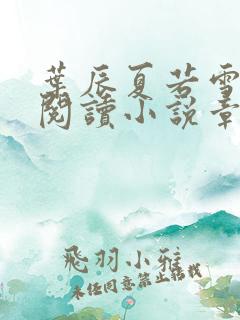 葉辰夏若雪
閱讀小說章
飛羽小雅
未經同意禁止轉載